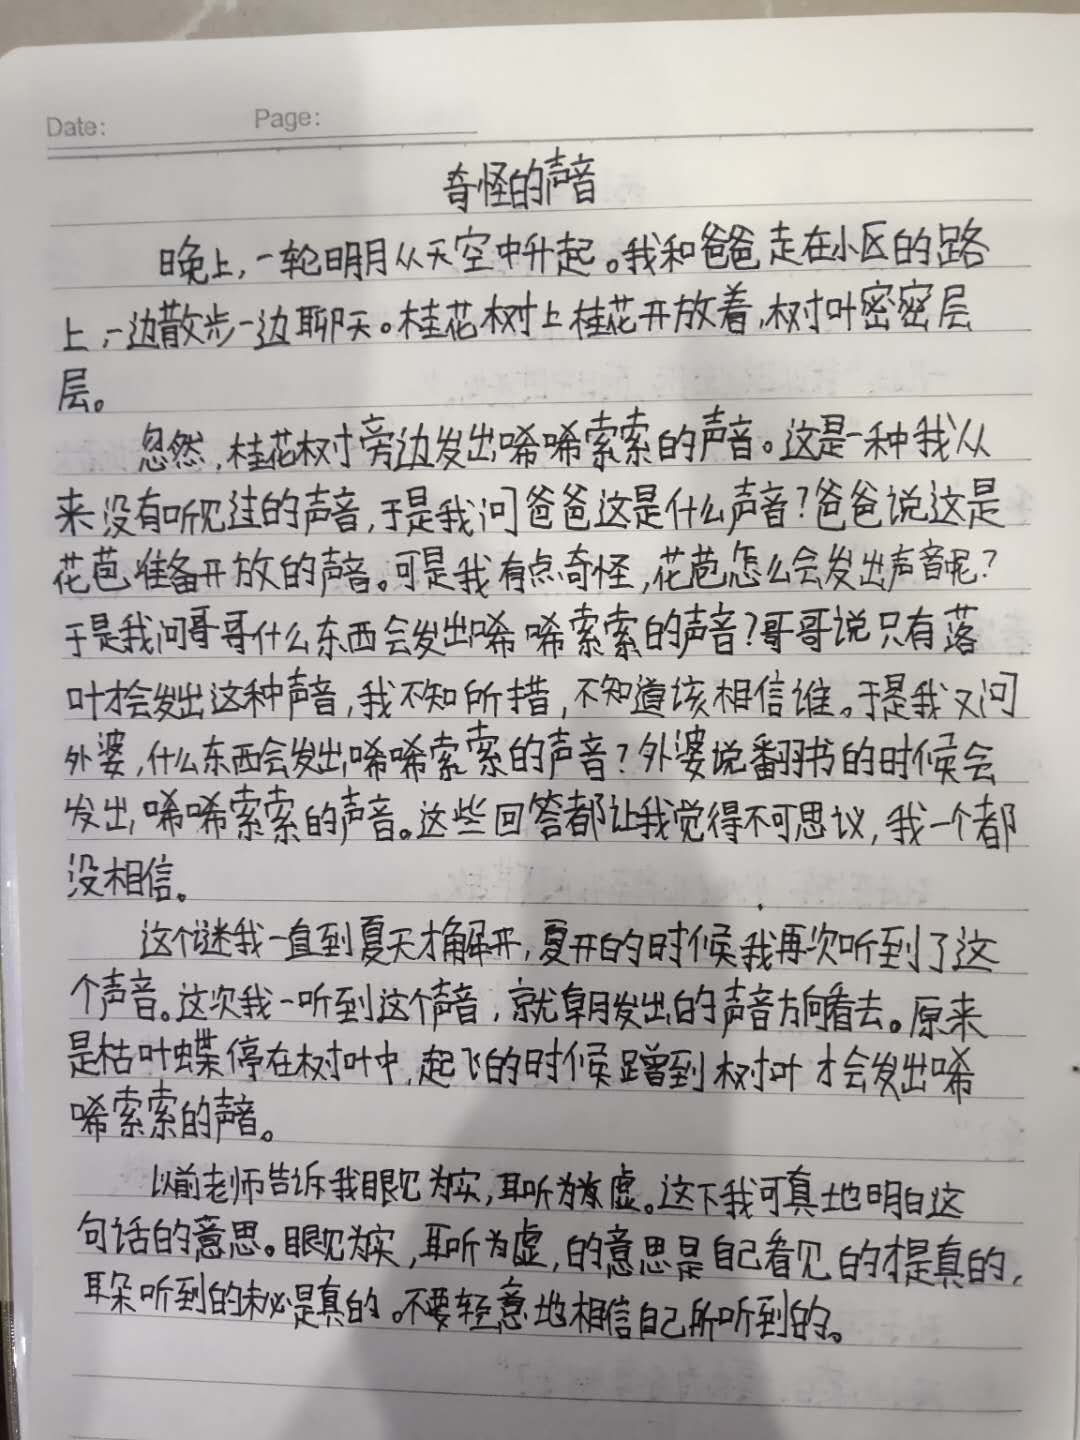 Date:
Page:
奇怪的声音
晚上,一轮明月从天空中升起。我和爸爸走在小区的路
上,一边散步一边聊天。桂花树上桂花开放着,树叶密密层
层。
忽然,桂花树旁边发出唏唏索索的声音。这是一种我从
来没有听见过的声音,于是我问爸爸这是什么声音?爸爸说这是
花苞准备开放的声音。可是我有点奇怪,花苞怎么会发出声音呢?
于是我问哥哥什么东西会发出唏唏索索的声音?哥哥说只有落
叶才会发出这种声音,我不知所措,不知道该相信谁。于是我又问
外婆,什么东西会发出唏唏索索的声音?外婆说翻书的时候会
发出唏唏索索的声音。这些回答都让我觉得不可思议,我一个都
没相信。
这个谜我一直到夏天才解开,夏天的时候我再次听到了这
个声音。这次我一听到这个声音,就朝发出的声音方向看去。原来
是枯叶蝶停在树叶中,起飞的时候蹭到树叶才会发出唏
唏索索的声音。
以前老师告诉我眼见为实,耳听为虚。这下我可真地明白这
句话的意思。眼见为实,耳听为虚,的意思是自己看见的才是真的,
耳朵听到的未必是真的。不要轻意地相信自己所听到的。